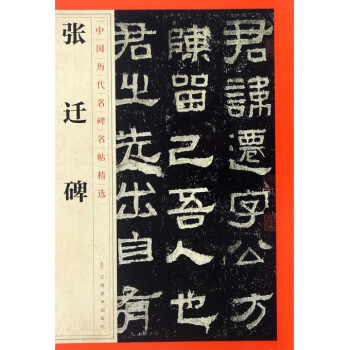 张迁碑
中国历代名碑名帖精选
江西美术出版社
君諱遷字公方
陳留己吾人也
君之先出自有